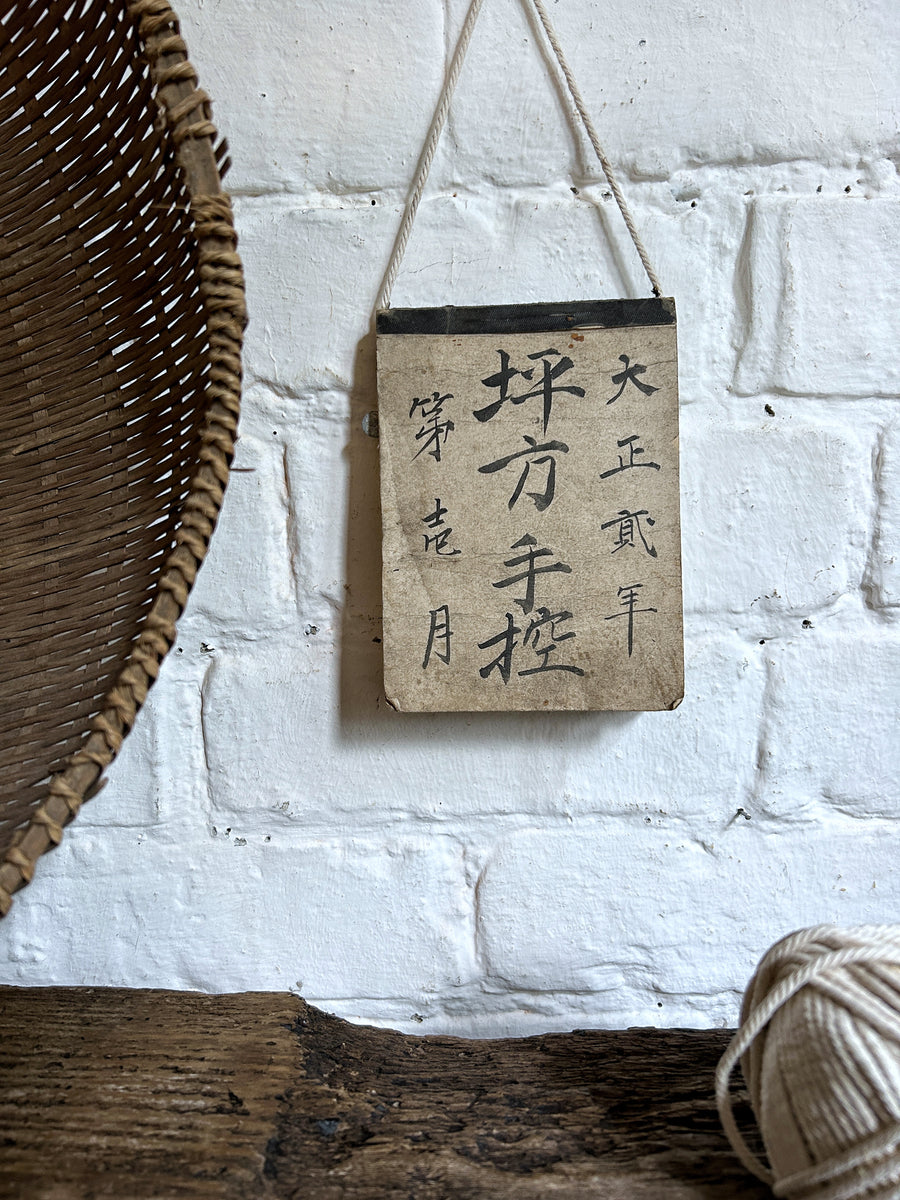 大正貳年
坪方手控
第壱月